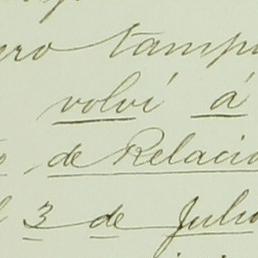 ero tampo
volví á
de Relacio
l 3 de Julio